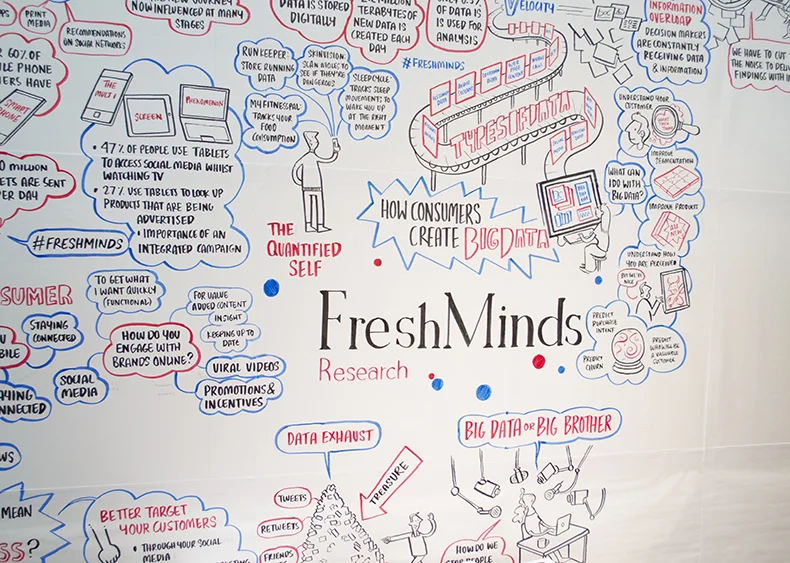 PRINT
MEDIA
RECOMMENDATIONS
ON SOCIAL NETWORKS
NOW INFLUENCED AT MANY
STAGES
DATA IS STORED
DIGITALLY
TERABYTES OF
NEW DATA IS
CREATED EACH
DAY
OF DATA IS
IS USED FOR
ANALYSIS
VELOCITY
INFORMATION
OVERLOAD
DECISION MAKERS
ARE CONSTANTLY
RECEIVING DATA
& INFORMATION
WE HAVE TO CUT
THE NOISE TO
FINDINGS WITH
60% OF
PHONE
HAVE
SMART
PHONE
THE
MULTI
SCREEN
PHENOMENON
• 47% OF PEOPLE USE TABLETS
TO ACCESS SOCIAL MEDIA WHILST
WATCHING TV
• 27% USE TABLETS TO LOOK UP
PRODUCTS THAT ARE BEING
ADVERTISED
• IMPORTANCE OF AN
INTEGRATED CAMPAIGN
#FRESHMINDS
MILLION
ARE SENT
PER DAY
RUNKEEPER:
STORE RUNNING
DATA
SKINVISION:
SCAN MOLES TO
SEE IF THEY'RE
DANGEROUS
SLEEPCYCLE:
TRACKS SLEEP
MOVEMENTS TO
WAKE YOU UP
AT THE RIGHT
MOMENT
MYFITNESSPAL:
TRACKS YOUR
FOOD
CONSUMPTION
THE
QUANTIFIED
SELF
#FRESHMINDS
TYPES OF DATA
HOW CONSUMERS
CREATE BIG DATA
UNDERSTAND YOUR
CUSTOMER
IMPROVE
SEGMENTATION
WHAT CAN
I DO WITH
BIG DATA?
IMPROVE PRODUCTS
ALL NEW
UNDERSTAND HOW
YOU ARE PERCEIVED
PREDICT
PURCHASE
INTENT
PREDICT
CHURN
PREDICT
WHO WILL BE
A VALUABLE
CUSTOMER
FreshMinds
Research
TO GET WHAT
I WANT QUICKLY
(FUNCTIONAL)
FOR VALUE
ADDED CONTENT
INSIGHT
KEEPING UP TO
DATE
HOW DO YOU
ENGAGE WITH
BRANDS ONLINE?
STAYING
CONNECTED
SOCIAL
MEDIA
VIRAL VIDEOS
PROMOTIONS &
INCENTIVES
DATA EXHAUST
TREASURE
TWEETS
RETWEETS
FRIENDS
BIG DATA OR BIG BROTHER
HOW DO WE
PEOPLE
MEAN
BETTER TARGET
YOUR CUSTOMERS
• THROUGH YOUR SOCIAL
MEDIA